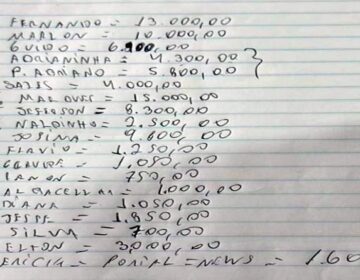 FERNANDO = 13.000,00
MARLON = 10.000,00
GUIDO = 6.200,00
ADRIANINHA = 4.300,00
P. ADRIANO = 5.800,00
= 4.000,00
MARQUES = 15.000,00
JEFERSON = 8.300,00
NALDINHO = 2.500,00
JOSINA = 9.600,00
FLAVIO = 1.250,00
= 1.050,00
= 750,00
= 1.000,00
DIANA = 1.050,00
JESSE = 1.850,00
SILVA = 700,00
ELTON = 3,000,00
= PORTAL = NEWS = 1.60